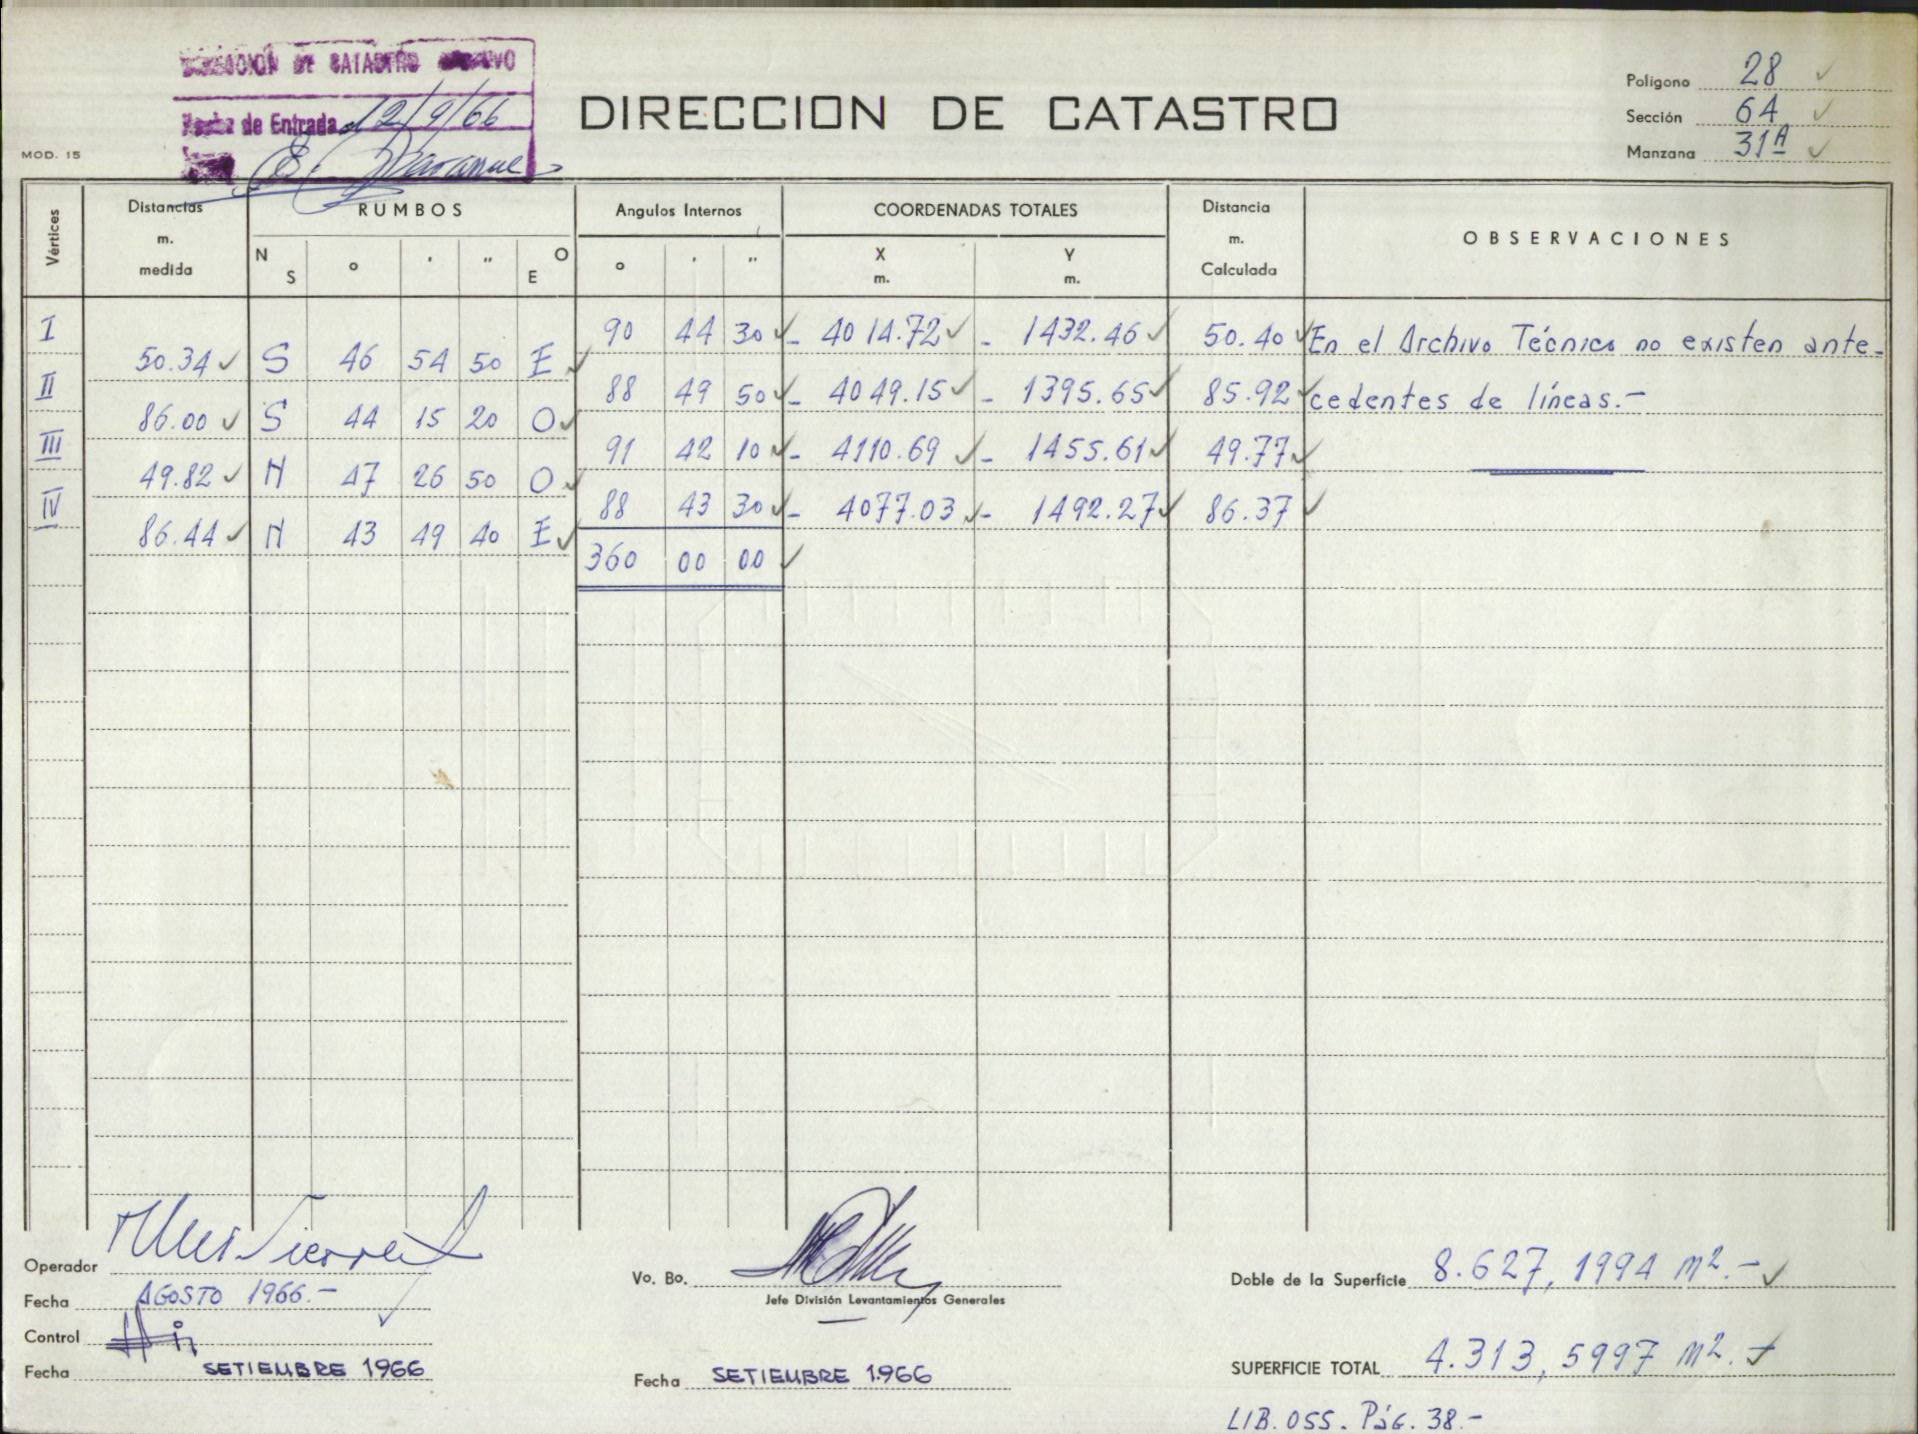 DIRECCION DE CATASTRO ARCHIVO
Fecha de Entrada 12/9/66
MOD. 15
DIRECCION DE CATASTRO
Polígono 28
Sección 64
Manzana 31A
Vértices
Distancias m. medida
RUMBOS
N S ° ' " O E
Angulos Internos
° ' "
COORDENADAS TOTALES
X m. Y m.
Distancia m. Calculada
OBSERVACIONES
I 90 44 30 - 4014.72 - 1432.46 50.40 En el Archivo Técnico no existen ante-
50.34 S 46 54 50 E
II 88 49 50 - 4049.15 - 1395.65 85.92 cedentes de líneas.-
86.00 S 44 15 20 O
III 91 42 10 - 4110.69 - 1455.61 49.77
49.82 N 47 26 50 O
IV 88 43 30 - 4077.03 - 1492.27 86.37
86.44 N 43 49 40 E
360 00 00
Operador
Fecha AGOSTO 1966.-
Control
Fecha SETIEMBRE 1966
Vo. Bo.
Jefe División Levantamientos Generales
Fecha SETIEMBRE 1966
Doble de la Superficie 8.627,1994 m2.-
SUPERFICIE TOTAL 4.313,5997 m2.-
LIB. 055. Pág. 38.-